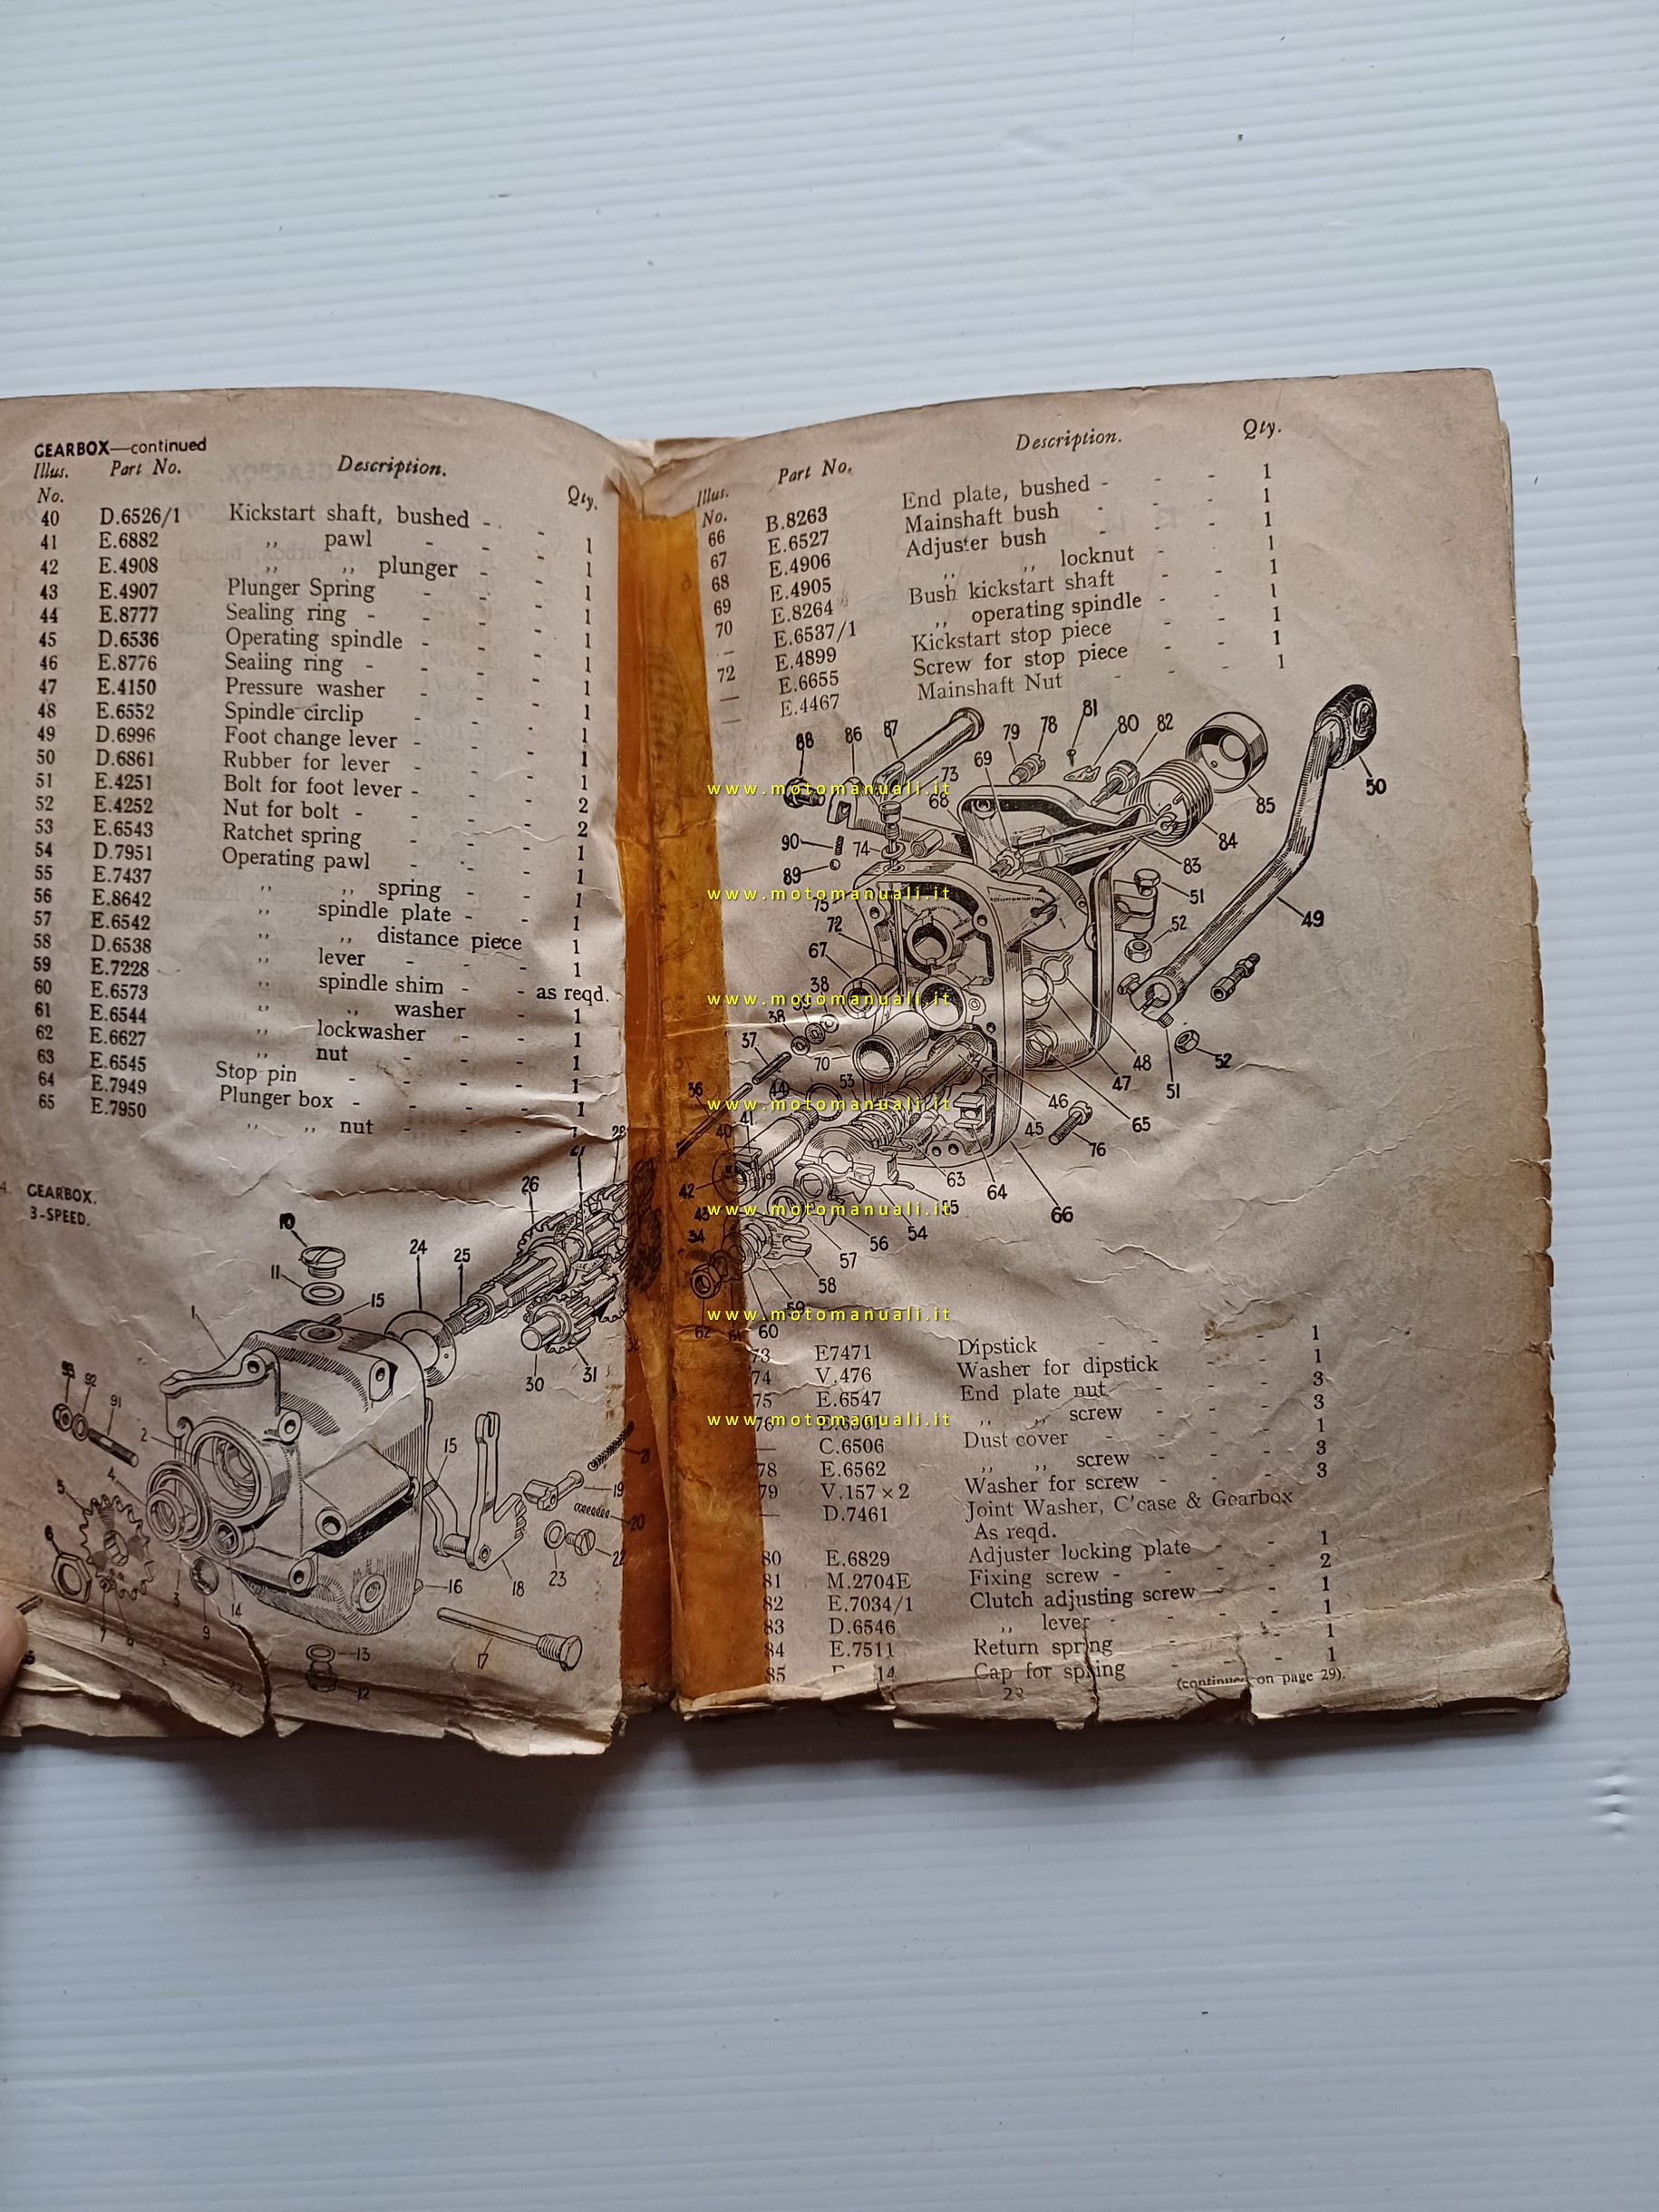 GEARBOX—continued
Illus. No. Part No. Description. Qty.
40 D.6526/1 Kickstart shaft, bushed - - 1
41 E.6882 ,, pawl - - - 1
42 E.4908 ,, ,, plunger - - 1
43 E.4907 Plunger Spring - - - 1
44 E.8777 Sealing ring - - - - 1
45 D.6536 Operating spindle - - - 1
46 E.8776 Sealing ring - - - - 1
47 E.4150 Pressure washer - - - 1
48 E.6552 Spindle circlip - - - 1
49 D.6996 Foot change lever - - - 1
50 D.6861 Rubber for lever - - - 1
51 E.4251 Bolt for foot lever - - - 2
52 E.4252 Nut for bolt - - - - 2
53 E.6543 Ratchet spring - - - 1
54 D.7951 Operating pawl - - - 1
55 E.7437 ,, ,, spring - - 1
56 E.8642 ,, spindle plate - - 1
57 E.6542 ,, ,, distance piece 1
58 D.6538 ,, lever - - - 1
59 E.7228 ,, spindle shim - - as reqd.
60 E.6573 ,, ,, washer - 1
61 E.6544 ,, lockwasher - - 1
62 E.6627 ,, nut - - - 1
63 E.6545 Stop pin - - - - 1
64 E.7949 Plunger box - - - - 1
65 E.7950 ,, ,, nut - - - 1
GEARBOX.
3-SPEED.
10
11
15
24
25
26
28
1
30
31
93
92
91
2
4
5
6
3
14
9
15
16
17
18
19
20
21
22
23
13
12
Illus. No. Part No. Description. Qty.
66 B.8263 End plate, bushed - - - 1
67 E.6527 Mainshaft bush - - - 1
68 E.4906 Adjuster bush - - - 1
69 E.4905 ,, ,, locknut - - 1
70 E.8264 Bush kickstart shaft - - 1
— E.6537/1 ,, operating spindle - - 1
72 E.4899 Kickstart stop piece - - 1
— E.6655 Screw for stop piece - - 1
— E.4467 Mainshaft Nut - - - 1
88
86
87
79
78
81
80
82
73
69
68
85
50
90
74
84
83
89
51
75
52
49
72
67
38
39
38
37
70
53
44
48
47
51
52
36
46
41
40
45
65
76
42
63
64
43
55
54
66
34
56
57
58
59
62
61
60
www.motomanuali.it
www.motomanuali.it
www.motomanuali.it
www.motomanuali.it
www.motomanuali.it
www.motomanuali.it
www.motomanuali.it
73 E7471 Dipstick - - - - 1
74 V.476 Washer for dipstick - - 1
75 E.6547 End plate nut - - - 3
76 E.6561 ,, ,, screw - - - 3
— C.6506 Dust cover - - - - 1
78 E.6562 ,, ,, screw - - - 3
79 V.157 × 2 Washer for screw - - - 3
— D.7461 Joint Washer, C'case & Gearbox
As reqd.
80 E.6829 Adjuster locking plate - - 1
81 M.2704E Fixing screw - - - - 2
82 E.7034/1 Clutch adjusting screw - - 1
83 D.6546 ,, lever - - - 1
84 E.7511 Return spring - - - 1
85 14 Cap for spring - - - 1
(continued on page 29).